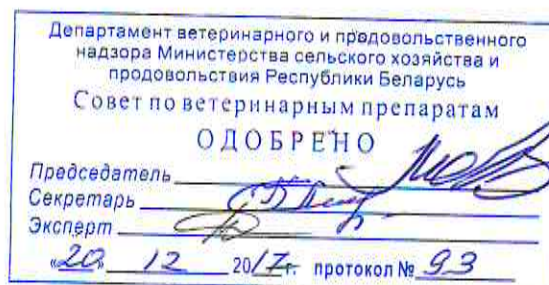 Департамент ветеринарного и продовольственного
надзора Министерства сельского хозяйства и
продовольствия Республики Беларусь
Совет по ветеринарным препаратам
ОДОБРЕНО
Председатель
Секретарь
Эксперт
«20» 12 2017г. протокол № 93